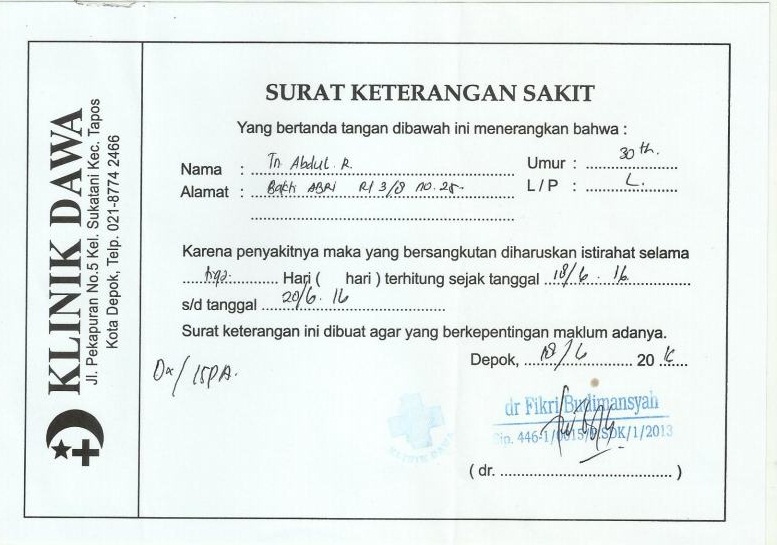 KLINIK DAWA
Jl. Pekapuran No.5 Kel. Sukatani Kec. Tapos
Kota Depok, Telp. 021-8774 2466
SURAT KETERANGAN SAKIT
Yang bertanda tangan dibawah ini menerangkan bahwa :
Nama : Tn Abdul. R. Umur : 30 th.
Alamat : Bakti ABRI Rt 3/8 no. 25. L / P : L.
Karena penyakitnya maka yang bersangkutan diharuskan istirahat selama
tiga. Hari ( hari ) terhitung sejak tanggal 18/6 . 16
s/d tanggal 20/6 . 16
Surat keterangan ini dibuat agar yang berkepentingan maklum adanya.
Depok, 18/6 20 16
Dx/ ISPA.
KLINIK DAWA
dr Fikri Budimansyah
446-1/0015/ SDK/1/2013
( dr. )